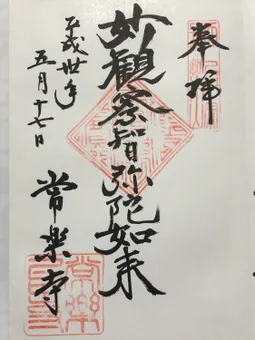 奉拝
妙観察智弥陀如来
常楽寺
平成卅年
五月十七日